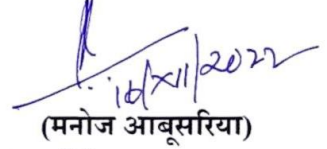 16/XII/2022
(मनोज आबूसरिया)